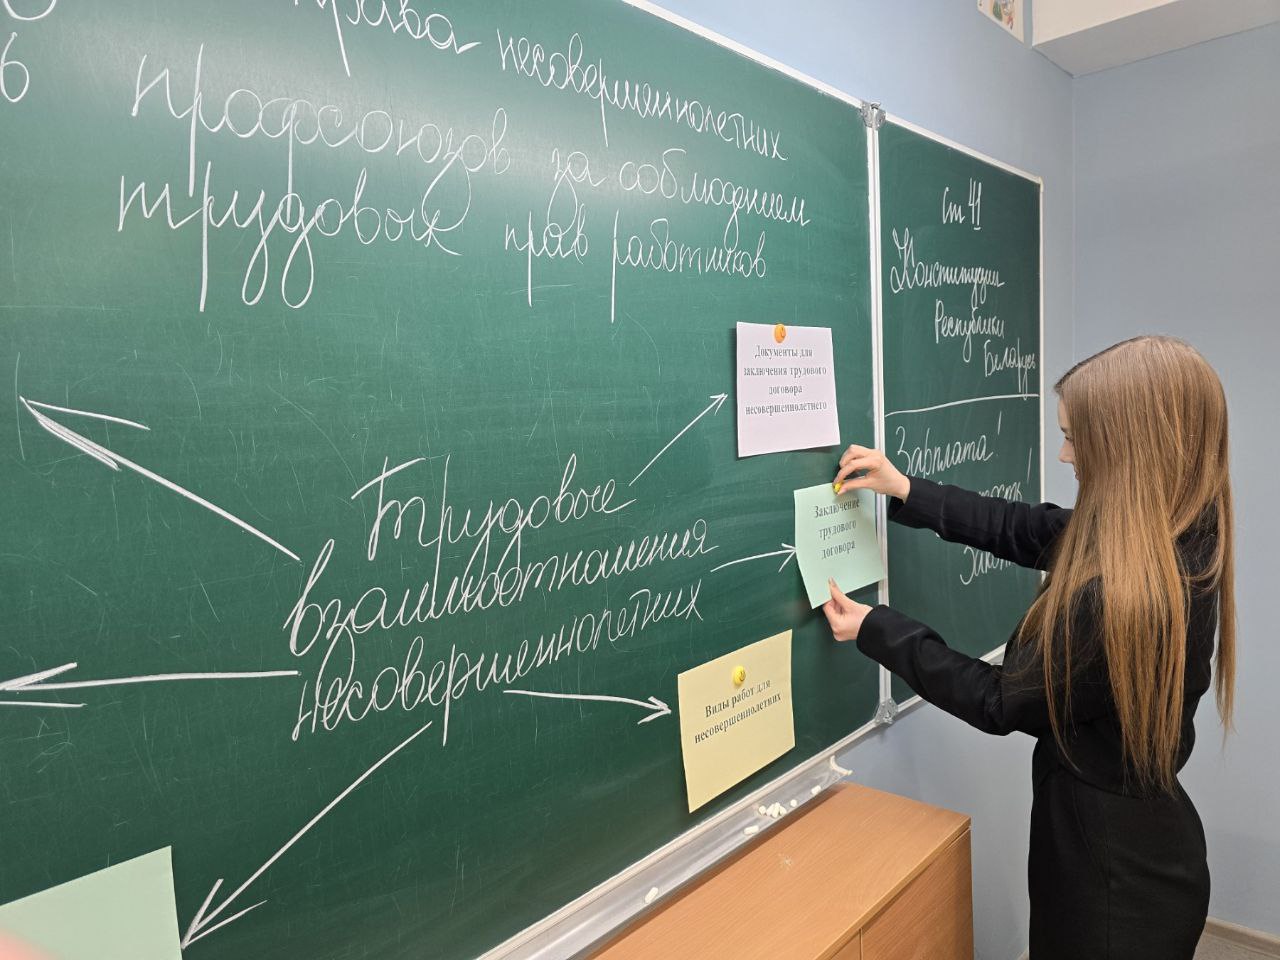 права несовершеннолетних
профсоюзов за соблюдением
трудовых прав работников
Документы для
заключения трудового
договора
несовершеннолетнего
Трудовые
взаимоотношения
несовершеннолетних
Заключение
трудового
договора
Виды работ для
несовершеннолетних
Ст 41
Конституции
Республики
Беларусь
Зарплата!